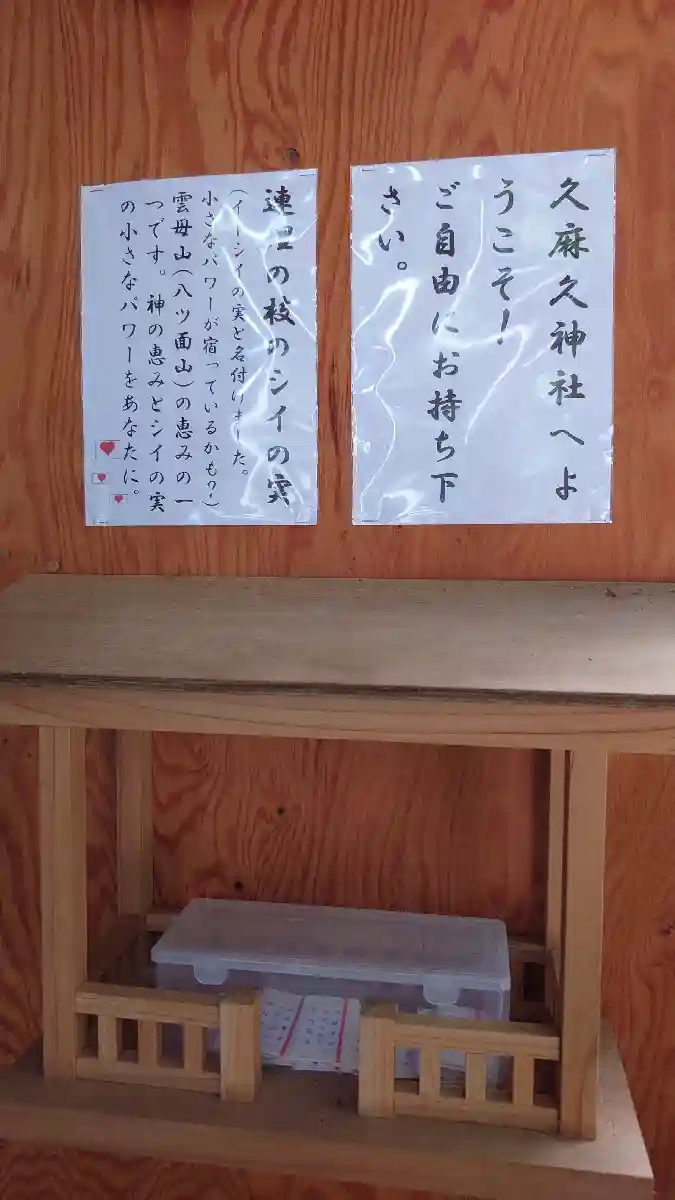 久麻久神社へよ
うこそ！
ご自由にお持ち下
さい。
連理の枝のシイの実
(イーシイの実と名付けました。
小さなパワーが宿っているかも?!)
雲母山(八ツ面山)の恵みの一
つです。神の恵みとシイの実
の小さなパワーをあなたに。